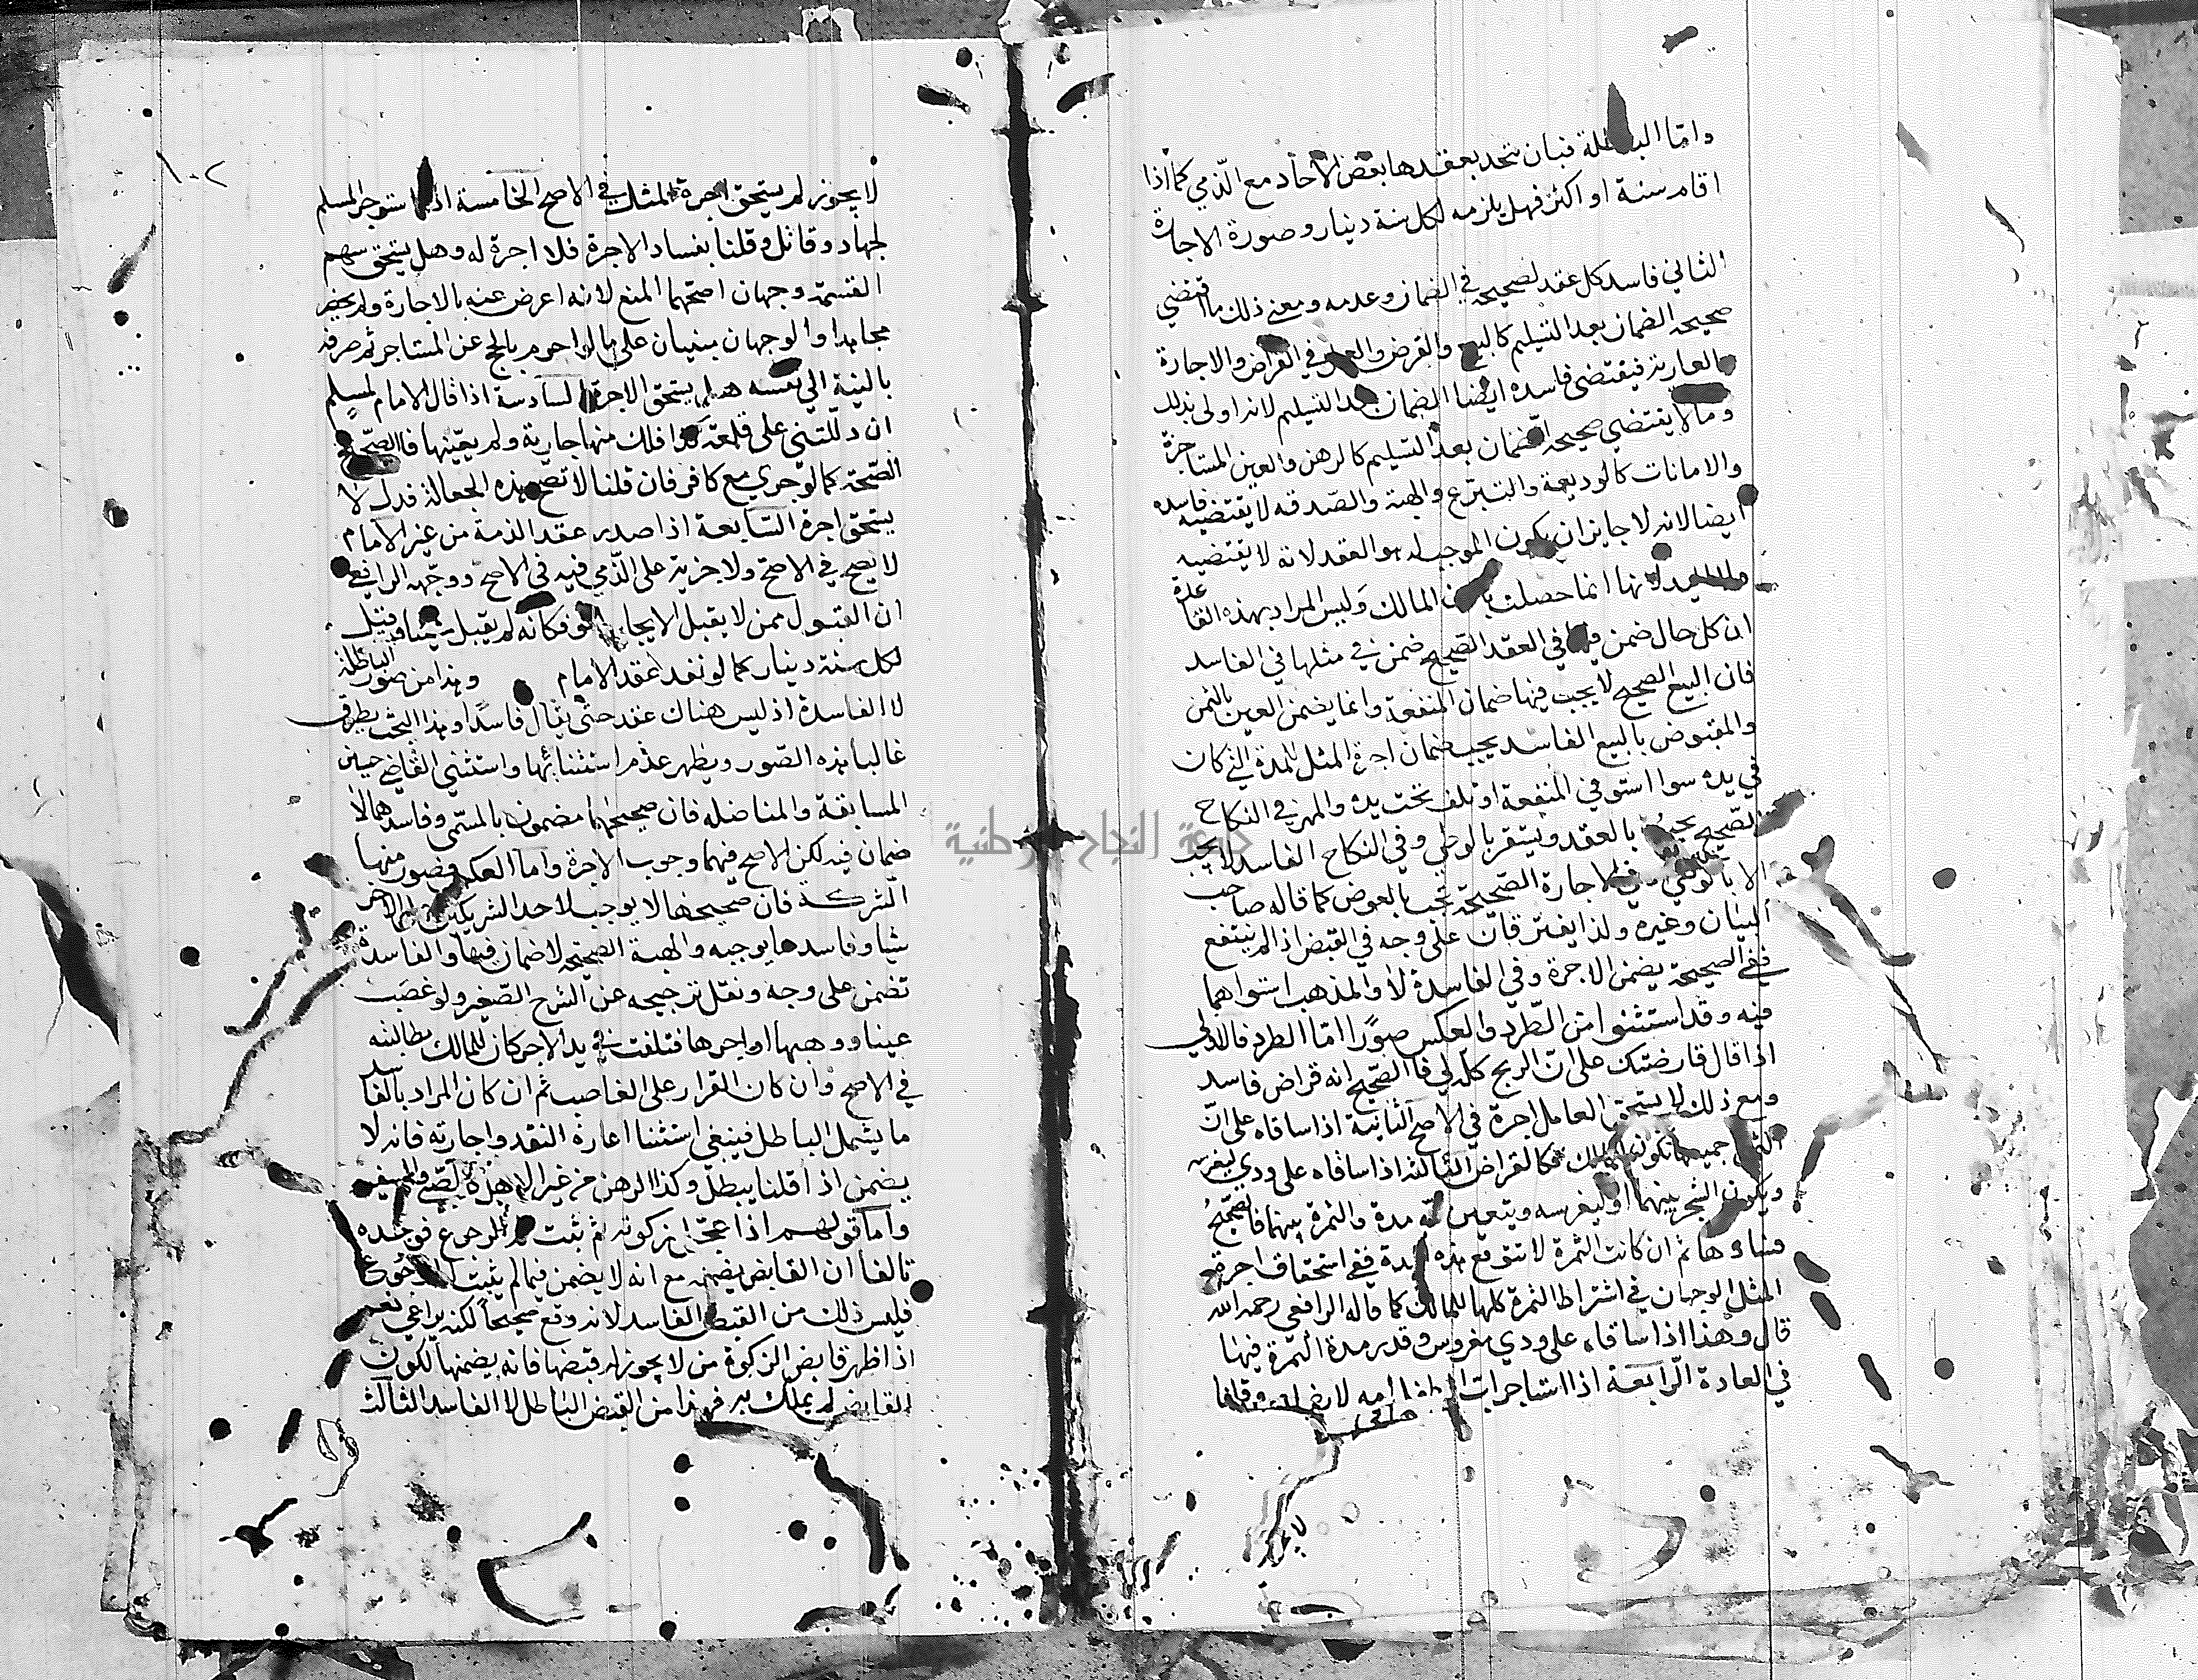 واما الباطلة فبان تحد بعقدها بعض الآحاد مع الذمي كما اذا
اقام سنة او اكثر فهل يلزمه لكل سنة دينار وصورة الاجارة
الثاني فاسد كل عقد لصحيحه في الضمان وعدمه ومعنى ذلك ما اقتضى
صحيحه الضمان بعد التسليم كالبيع والقرض والعمل في القراض والاجارة
والعارية فيقتضى فاسده ايضا الضمان بعد التسليم لانه اولى بذلك
وما لا يقتضي صحيحه الضمان بعد التسليم كالرهن والعين المستاجرة
والامانات كالوديعة والتبرع والهبة والصدقه لا يقتضيه فاسده
ايضا لانه لا جايز ان يكون الموجب له هو العقد لانه لا يقتضيه
ولا اليد لانها انما حصلت باذن المالك وليس المراد بهذه القاعدة
ان كل حال ضمن فيها في العقد الصحيح ضمن في مثلها في الفاسد
فان البيع الصحيح لا يجب فيها ضمان المنفعة وانما يضمن العين بالثمن
والمقبوض بالبيع الفاسد يجب ضمان اجرة المثل للمدة التي كان
في يده سوا استوفى المنفعة او تلف تحت يده والمهر في النكاح
الصحيح يجب بالعقد ويستقر بالوطي وفي النكاح الفاسد لا يجب
الا بالوطي وفي الاجارة الصحيحة تجب بالعوض كما قاله صاحب
البيان وغيره ولذا يفترقان على وجه في القبض اذا لم ينتفع
ففي الصحيحة يضمن الاجرة وفي الفاسدة لا والمذهب استواهما
فيه وقد استثنوا من الطرد والعكس صورا اما الطرد فالاولى
اذا قال قارضتك على ان الربح كله لي فالصحيح انه قراض فاسد
ومع ذلك لا يستحق العامل اجرة في الاصح الثانية اذا ساقاه على ان
الثمرة جميعها تكون للمالك فكالقراض الثالثة اذا ساقاه على ودي ليغرسه
ويكون الشجر بينهما او ليغرسه ويتعهده مدة والثمرة بينهما فالصحيح
فسادها ثم ان كانت الثمرة لا تتوقع هذه المدة ففي استحقاق اجرة
المثل الوجهان في اشتراط الثمرة كلها للمالك كما قاله الرافعي رحمه الله
قال وهذا اذا ساقاه على ودي مغروس وقدر مدة الثمرة فيها
في العادة الرابعة اذا استاجر
لا يجوز لم يستحق اجرة المثل في الاصح الخامسة اذا استوجر المسلم
لجهاد وقاتل وقلنا بفساد الاجرة فلا اجرة له وهل يستحق سهم
القسمة وجهان اصحهما المنع لانه اعرض عنه بالاجارة ولم يحضر
مجاهدا والوجهان مبنيان على ما لو احرم بالحج عن المستاجر ثم صرفه
بالنية الى نفسه هل يستحق الاجرة السادسة اذا قال الامام لمسلم
ان دللتني على قلعة كذا فلك منها جارية ولم يعينها فالصحيح
الصحة كما لو جرى مع كافر فان قلنا لا تصح هذه الجعالة فدل لا
يستحق اجرة السابعة اذا صدر عقد الذمة من غير الامام
لا يصح في الاصح ولا جزية على الذمي فيه في الاصح ووجهه الرافعي
ان القبول ممن لا يقبل الايجاب لغو فكانه لم يقبل شيئا وقيل
لكل سنة دينار كما لو نفذ عقد الامام وهذا من صور الباطلة
لا الفاسدة اذ ليس هناك عقد حتى يقال فاسدا وهذا البحث يطرق
غالبا هذه الصور ويظهر عدم استثنائها واستثنى القاضي حسين
المسابقة والمناضله فان صحيحهما مضمون بالمسمى وفاسدهما لا
ضمان فيه لكن الاصح فيهما وجوب الاجرة واما العكس فصور منها
الشركة فان صحيحها لا يوجب لاحد الشريكين على الاخر
شيا وفاسدها يوجبه والهبة الصحيحة لا ضمان فيها والفاسدة
تضمن على وجه ونقل ترجيحه عن الشرح الصغير ولو غصب
عينا ووهبها او اجرها فتلفت في يد الاجر كان للمالك مطالبته
في الاصح وان كان القرار على الغاصب ثم ان كان المراد بالفاسد
ما يشمل الباطل فينبغي استثنا اعارة النقد واجارته فانه لا
يضمن اذا قلنا يبطل وكذا الرهن من غير الاهل
واما قولهم اذا عجل زكوته ثم ثبت له الرجوع فوجده
تالفا ان القابض يضمنه مع انه لا يضمن فيما لم يثبت الرجوع
فليس ذلك من القبض الفاسد لانه وقع صحيحا لكنه يراعي نعم
اذا ظهر قابض الزكوة من لا يجوز له قبضها فانه يضمنها لكون
القابض لم يملك به فهذا من القبض الباطل لا الفاسد الثالث
جامعة النجاح الوطنية
١٠٢